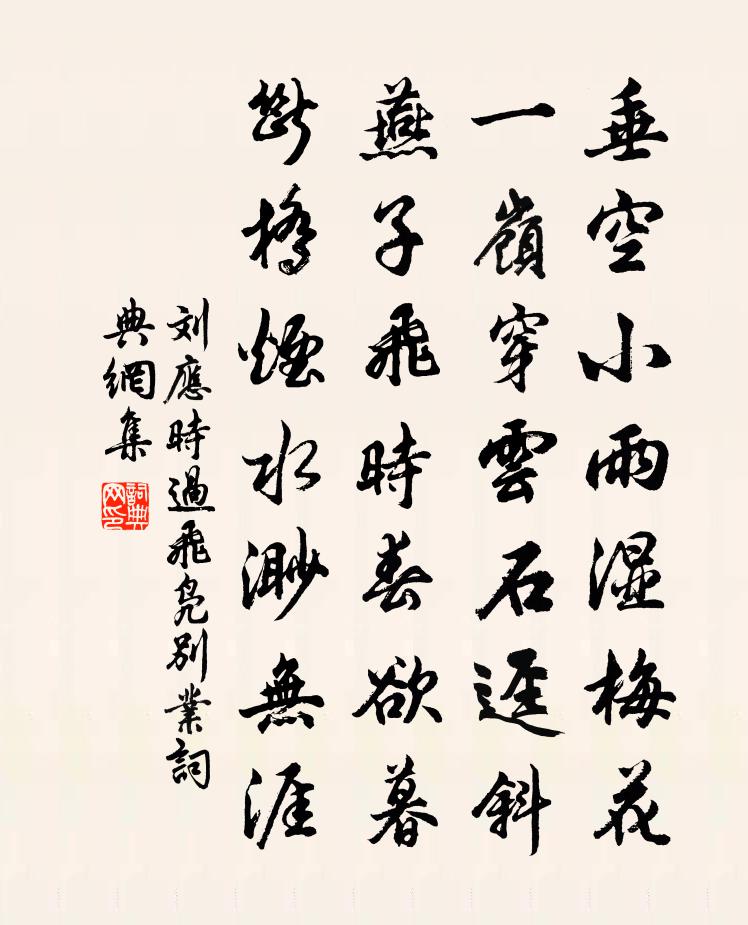 垂空小雨湿梅花
一嶺穿雲石逕斜
燕子飛時春欲暮
斷橋煙水渺無涯
刘應時過飛凫别業詞
典網集
詞典
网印